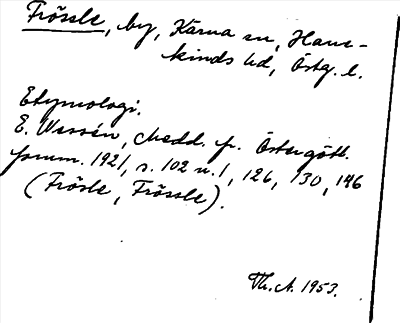 Frössle, by, Kärna sn, Hane-
kinds hd, Östg. l.
Etymologi.
E. Wessén, Medd. fr. Östergötl.
fornm. 1921, s. 102 n. 1, 126, 130, 146
(Frösle, Frössle).
Th. A. 1953.